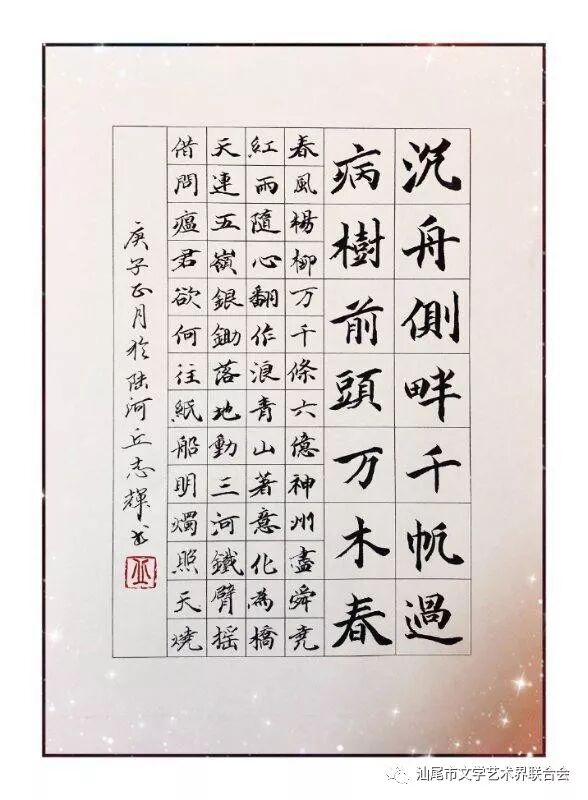 沉舟側畔千帆過
病樹前頭万木春
春風楊柳万千條六億神州盡舜堯
紅雨隨心翻作浪青山著意化為橋
天連五嶺銀鋤落地動三河鐵臂搖
借問瘟君欲何往紙船明燭照天燒
庚子正月於陸河丘志輝书
丘
汕尾市文学艺术界联合会